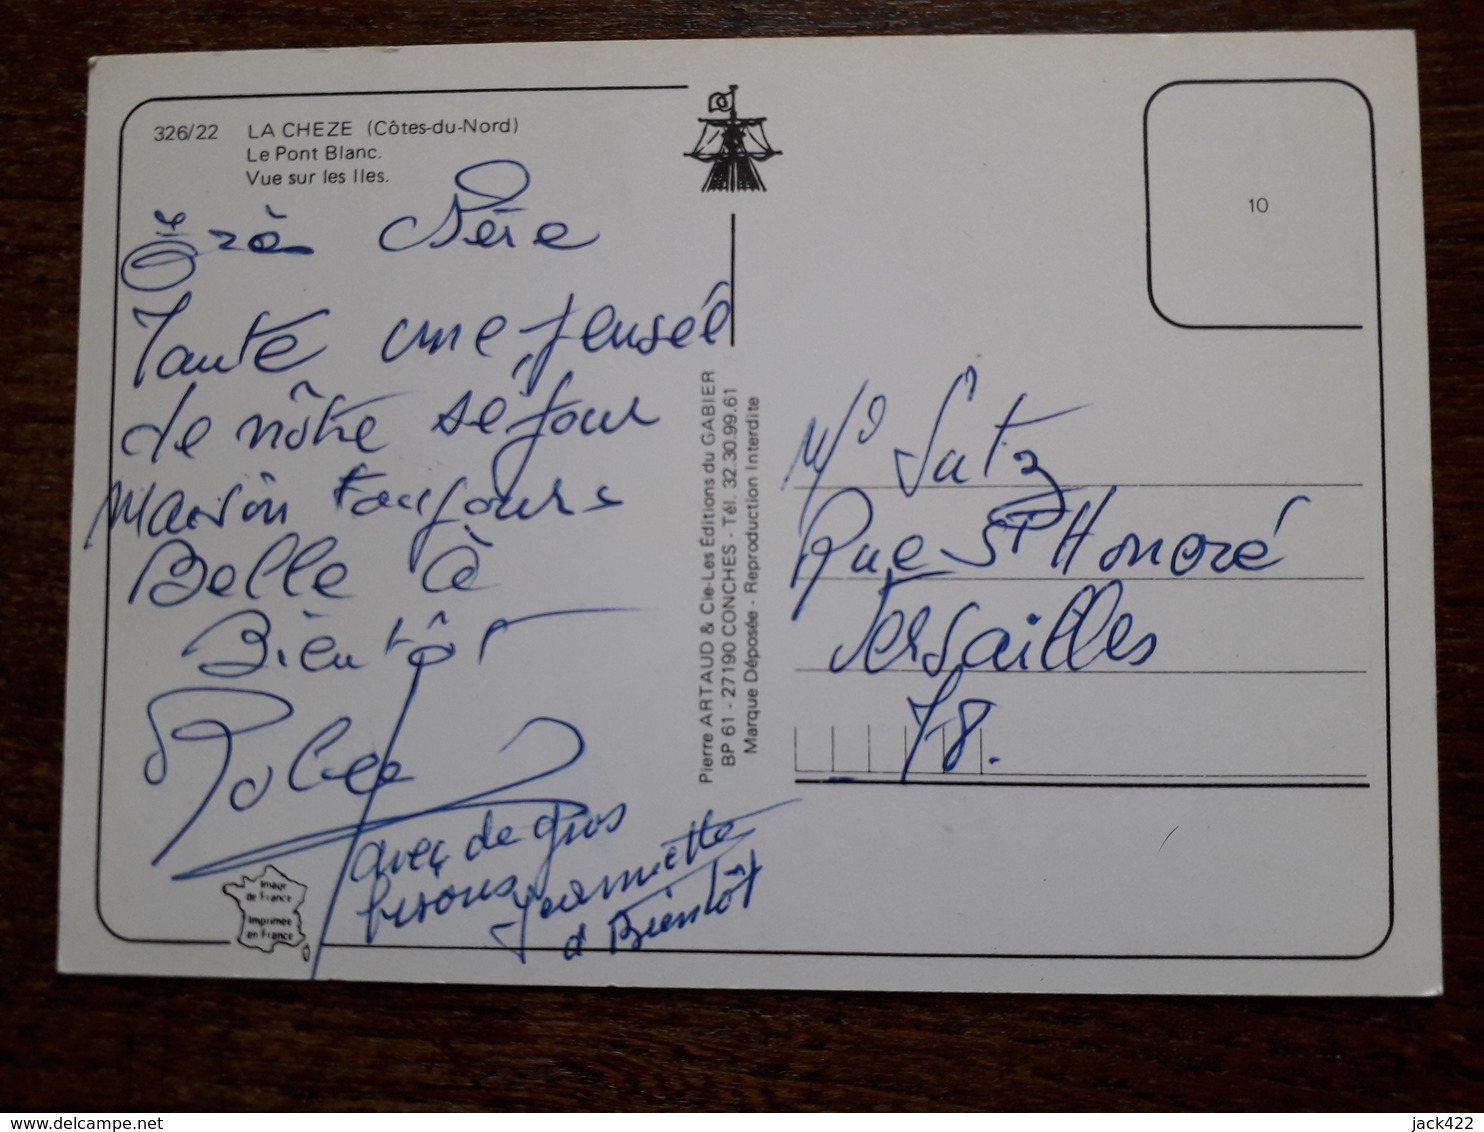 326/22 LA CHEZE (Côtes-du-Nord)
Le Pont Blanc.
Vue sur les Iles.
10
Père
Toute une pensée
de nôtre séjour
Maison toujours
Belle à
Bientôt
avec de gros
bisous
Jeannette
à Bientôt
Pierre ARTAUD & Cie-Les Éditions du GABIER
BP 61 - 27190 CONCHES - Tél. 32.30.99.61
Marque Déposée - Reproduction Interdite
Image
de France
Imprimée
en France
Rue St Honoré
Versailles
78.
jack422